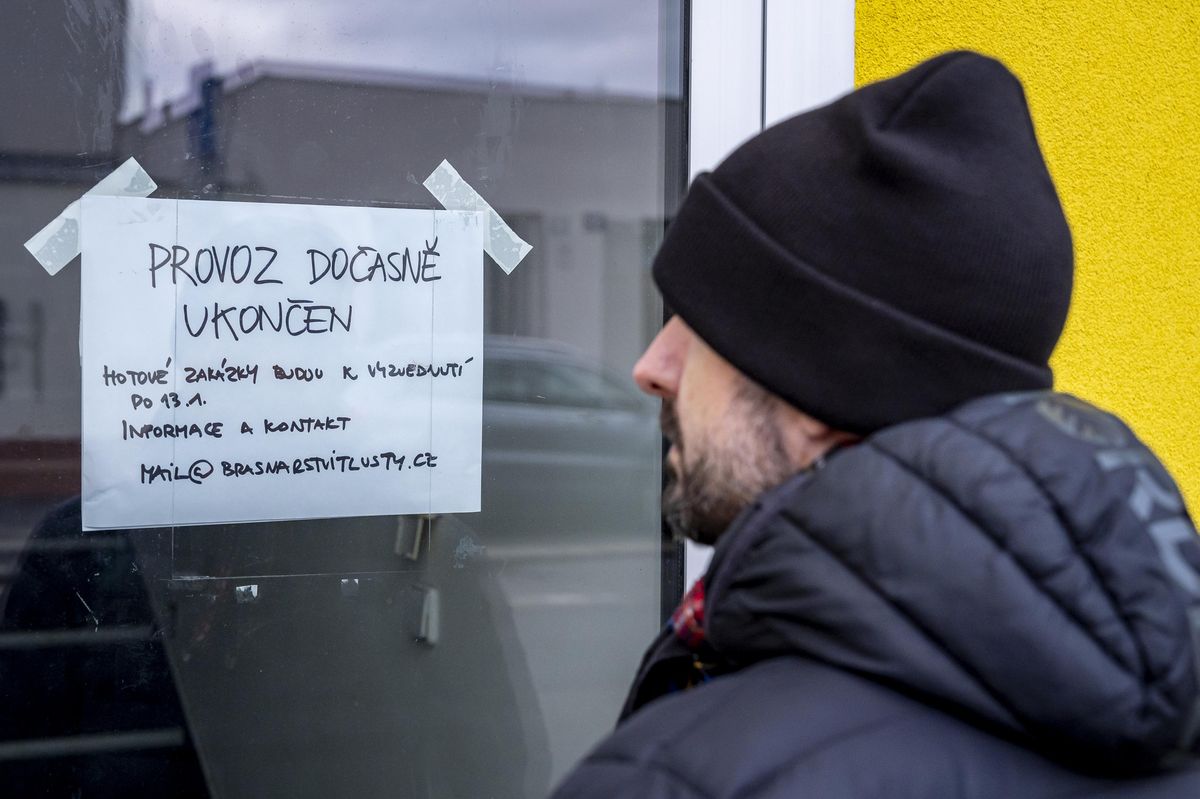 PROVOZ DOČASNĚ
UKONČEN
HOTOVÉ ZAKÁZKY BUDOU K VYZVEDNUTÍ
PO 13.1.
INFORMACE A KONTAKT
MAIL@BRASNARSTVITLUSTY.CZ